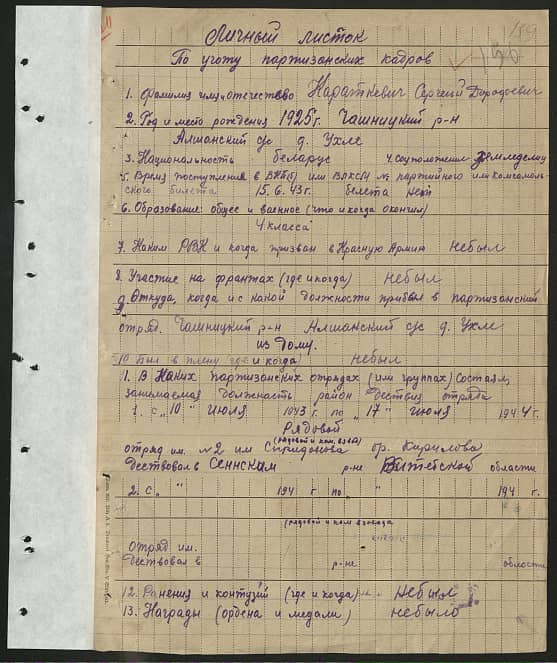 Личный листок
По учоту партизанских кадров
1. Фамилия имя, отечество Нараткевич Сергей Дородоевич
2. Год и место рождения 1925 г. Чашницкий р-н
Алшанский с/с д. Ухле
3. Национальность беларус 4. Соц положение Земледелец
5. Время поступления в ВКП(б) или ВЛКСМ № партийного или комсомоль-
ского билета 15.6.43 г. белета нет
6. Образование: общее и военное (что и когда окончил)
4 класса
7. Каким РВК и когда призван в Красную Армию небыл
8. Участие на франтах (где и когда) небыл
9. Откуда, когда и с какой должности прибыл в партизанский
отряд. Чашницкий р-н Алшанский с/с д. Ухле
из дому.
10 Был в плену где и когда) небыл
1. В каких партизанских отрядах (или группах) состаял,
занимаемая должность район дествия отряда
1. с „10 " июля 1943 г по „17 " июля 1944 г.
Рядовой
(рядовой и ком. взвода)
отряд им. №2 им Спридонова бр. Кирилова
Дествовал в Сеннским р-не Витебской области
2. с „ " 194 г по „ " 194 г.
(рядовой и ком взвода
отряд им.
Дествовал в р-не области
12. Ранения и контузий (где и когда) небыл
13. Награды (ордена и медали) небыло